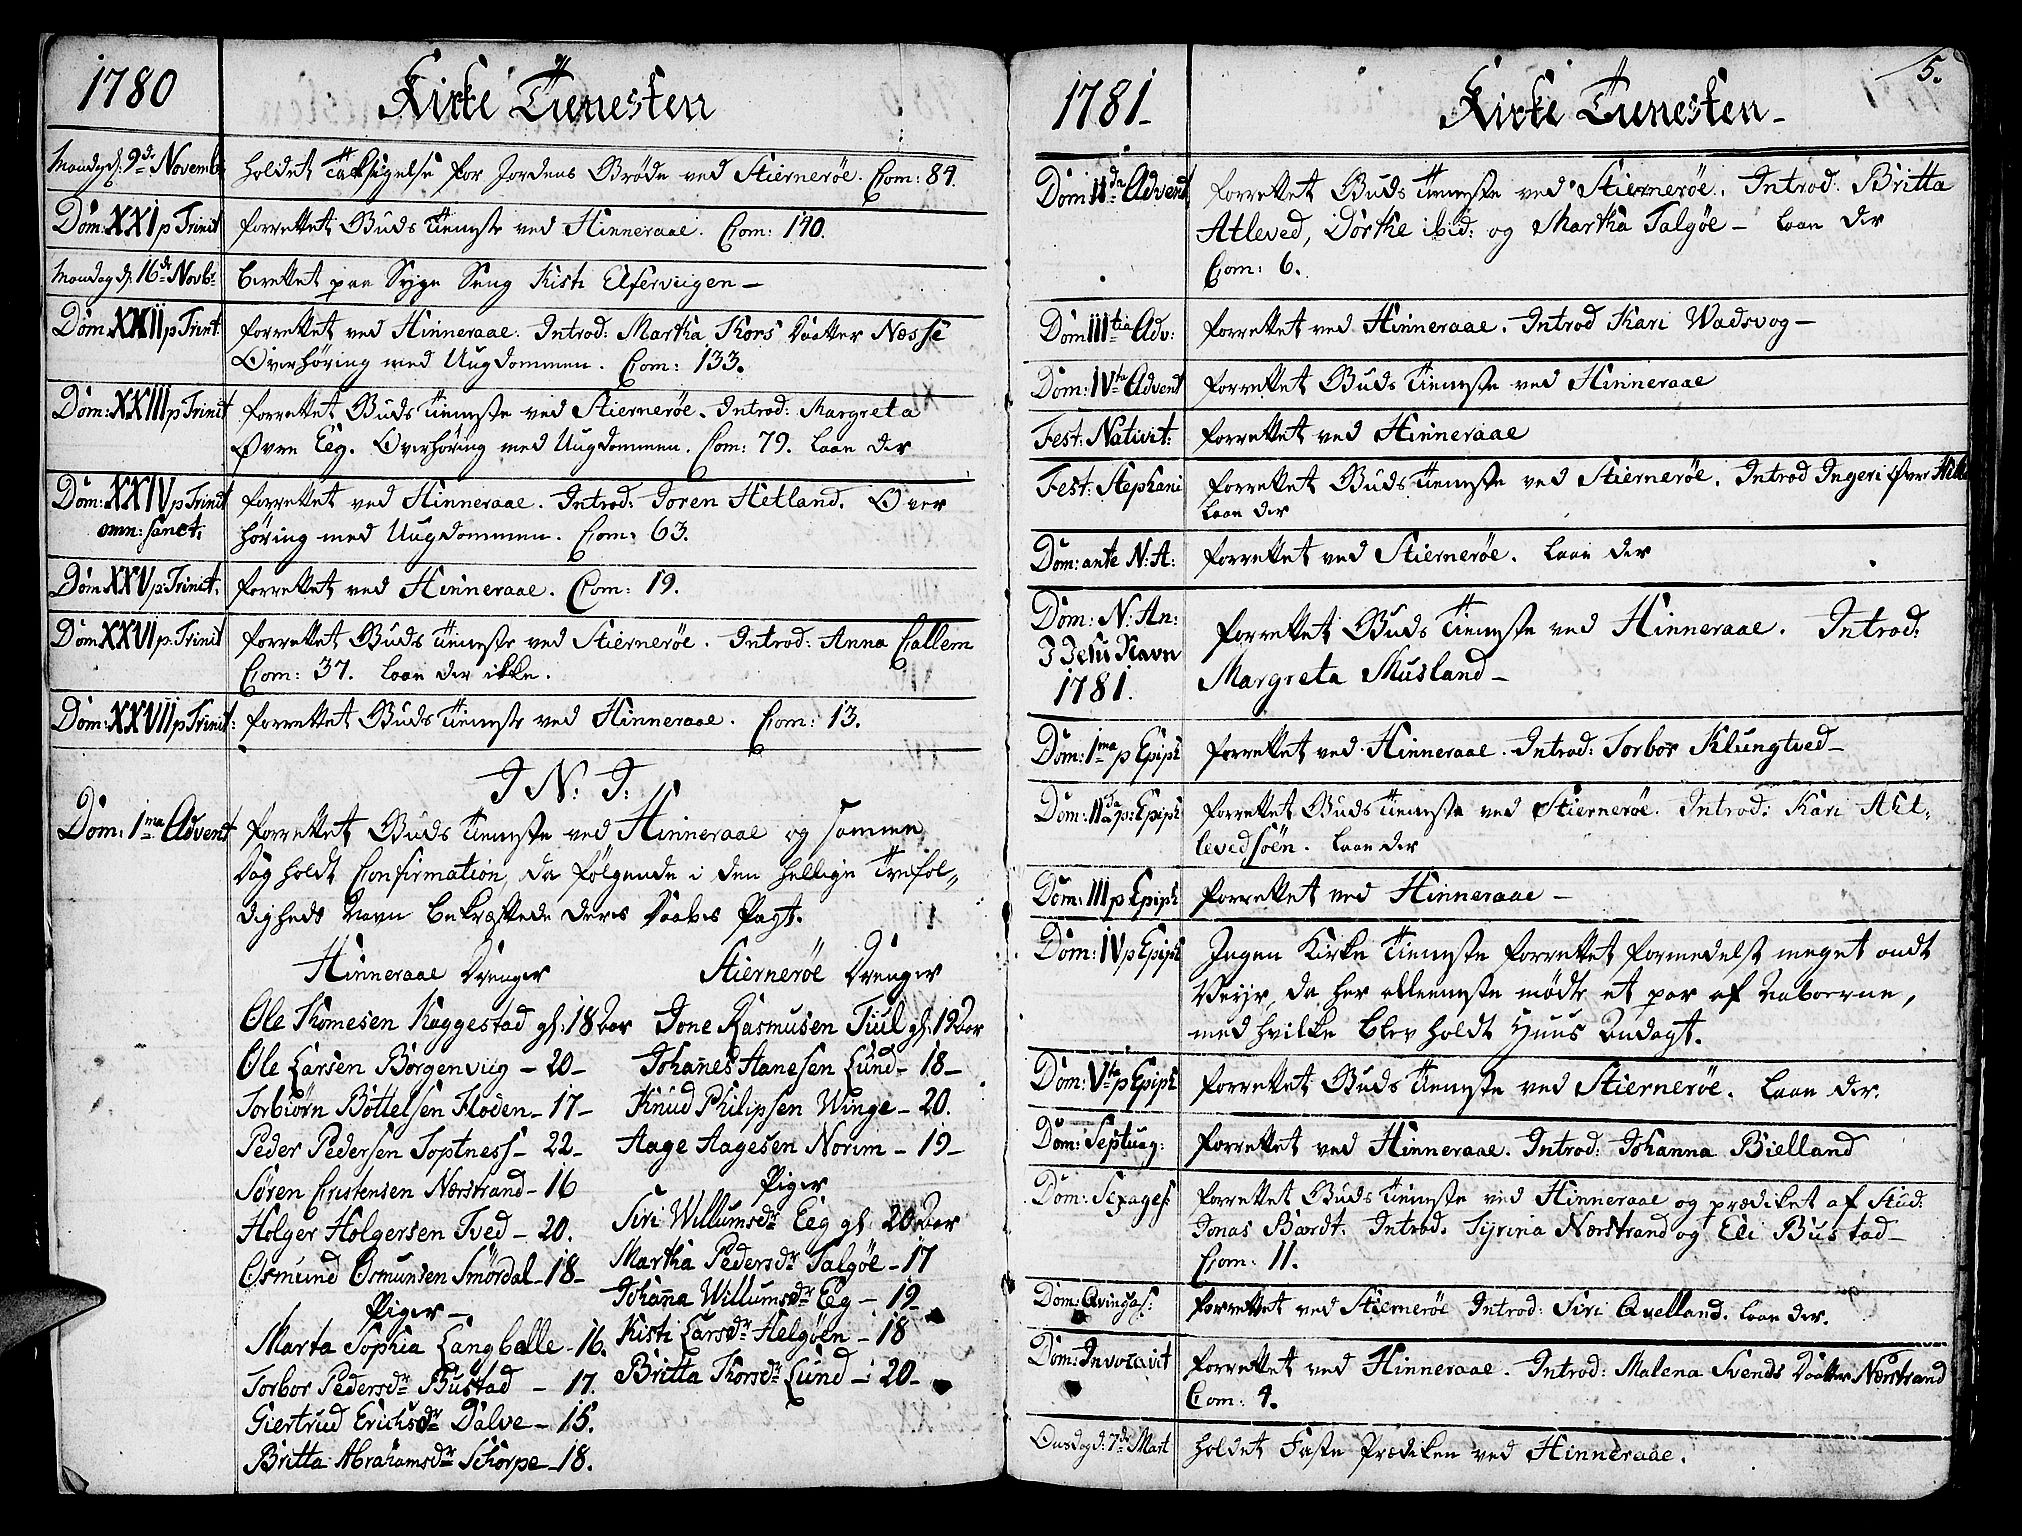 1780
Kirke Tienesten
Mandag d: 9de Novembr
holdet Taksigelse for Jordens Grøde ved Stiernerøe. Com: 84.
Dom: XXI p Trinit
forrettet Guds Tieneste ved Hinneraae. Com: 140.
Mandag d: 16de Novbr
berettet paa Syge Seng Kisti Elferviigen –
Dom: XXII p Trinit:
forrettet ved Hinneraae. Introd: Martha Thors Daatter Næsse
Overhøring med Ungdommen. Com: 133.
Dom: XXIII p Trinit
forrettet Guds Tieneste ved Stiernerøe. Introd: Margreta
Øvre Eeg. Overhøring med Ungdommen. Com: 79. laae der
Dom: XXIV p Trinit
omn: sanct:
forrettet ved Hinneraae. Introd: Joren Hetland. Over
høring med Ungdommen. Com: 63.
Dom XXV p: Trinit.
forrettet ved Hinneraae. Com: 19.
Dom XXVI p: Trinit
forrettet Guds Tieneste ved Stiernerøe. Introd: Anna Callem
Com: 37. laae der ikke.
Dom: XXVII p Trinit:
forrettet Guds Tieneste ved Hinneraae. Com: 13.
I N: J:
Dom: 1ma Advent
forrettet Guds Tieneste ved Hinneraae og samme
Dag holdt Confirmation, da følgende i den hellige Trefol„
digheds Navn bekræftede deres Daabes Pagt.
Hinneraae Drenger
Ole Thomesen Haggestad gl: 18 Aar
Ole Larsen Borgenviig – 20 –
Torbiørn Bottelsen Floden – 17 –
Peder Pedersen Toptness – 22 –
Søren Cristensen Nærstrand – 16
Holger Holgersen Tved – 20.
Osmund Osmunsen Smørdal – 18 –
Piger –
Marta Sophia Langballe – 16.
Torbor Pedersdr Bustad – 17.
Giertrud Erichsdr Dalve – 15.
Britta Abrahamsdr Schorpe – 18.
Stiernerøe Drenger
Jone Rasmusen Tiul gl: 19 Aar
Johanes Hanesen Lund – 18 –
Knud Philipsen Winge – 20.
Aage Aagesen Norim – 19 –
Piger
Siri Willumsdr Eeg gl: 20 Aar
Martha Pedersdr Talgøe – 17
Johana Willumsdr Eeg – 19
Kisti Larsdr Helgøen – 18
Britta Thorsdr Lund – 20 –
1781 –
Kirke Tienesten –
5.
Dom: IIda Advent
forrettet Guds Tieneste ved Stiernerøe. Introd: Britta
Atleved, Dorthe ibid: og Martha Talgøe – laae der
Com: 6.
Dom IIItia Adv:
forrettet ved Hinneraae. Introd Kari Wadsvog –
Dom: IVta Advent
forrettet Guds Tieneste ved Hinneraae
Fest: Nativit:
forrettet ved Hinneraae
Fest: Stephani
forrettet Guds Tieneste ved Stiernerøe. Introd Ingeri Øvre
laae der
Dom: ante N: A:
forrettet ved Stiernerøe. laae der
Dom: N: An:
J Jesu Navn
1781.
forrettet Guds Tieneste ved Hinneraae. Introd:
Margreta Musland –
Dom: 1ma p Epiph
forrettet ved Hinneraae. Introd: Torbor Klungtved –
Dom: IIda p: Epiph
forrettet Guds Tieneste ved Stiernerøe. Introd: Kari Atl„
levedsøen. laae der
Dom: III p Epiph
forrettet ved Hinneraae –
Dom: IV p Epiph
Ingen Kirke Tieneste forrettet formedelst meget ondt
Veyr, da her alleeneste mødte et par af Naboerne,
med hvilke blev holdt Huus Andagt.
Dom: Vta p Epiph
forrettet Guds Tieneste ved Stiernerøe. laae der.
Dom: Septuag:
forrettet ved Hinneraae. Introd: Johanna Bielland
Dom: Sexages:
forrettet Guds Tieneste ved Hinneraae og prædiket af Stud:
Jonas Bærdt. Introd. Syrina Nærstrand og Eli Bustad –
Com: 11.
Dom: Qvinqas:
forrettet ved Stiernerøe Introd: Siri Quelland. laae der.
Dom: Invocavit
forrettet ved Hinneraae. Introd: Malena Svends Daatter Nærstrand
Com: 4.
Onsdag d: 7de Mart
holdet Faste Prædiken ved Hinneraae.